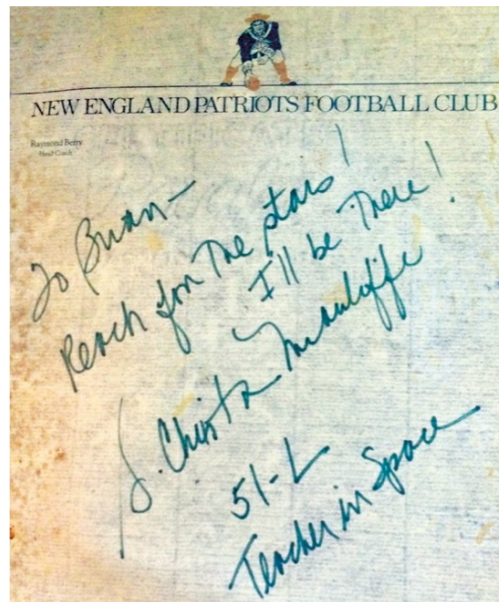 NEW ENGLAND PATRIOTS FOOTBALL CLUB
Raymond Berry
Head Coach
To Brian—
Reach for The stars!
I'll be There!
S. Christa McAuliffe
51-L
Teacher in Space